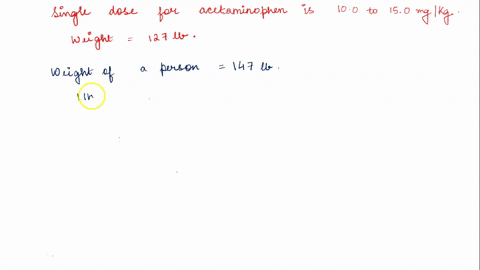 Single dose for acetaminophen is 10.0 to 15.0 mg/Kg.
Weight = 127 lb.
Weight of a person = 147 lb.
1 in